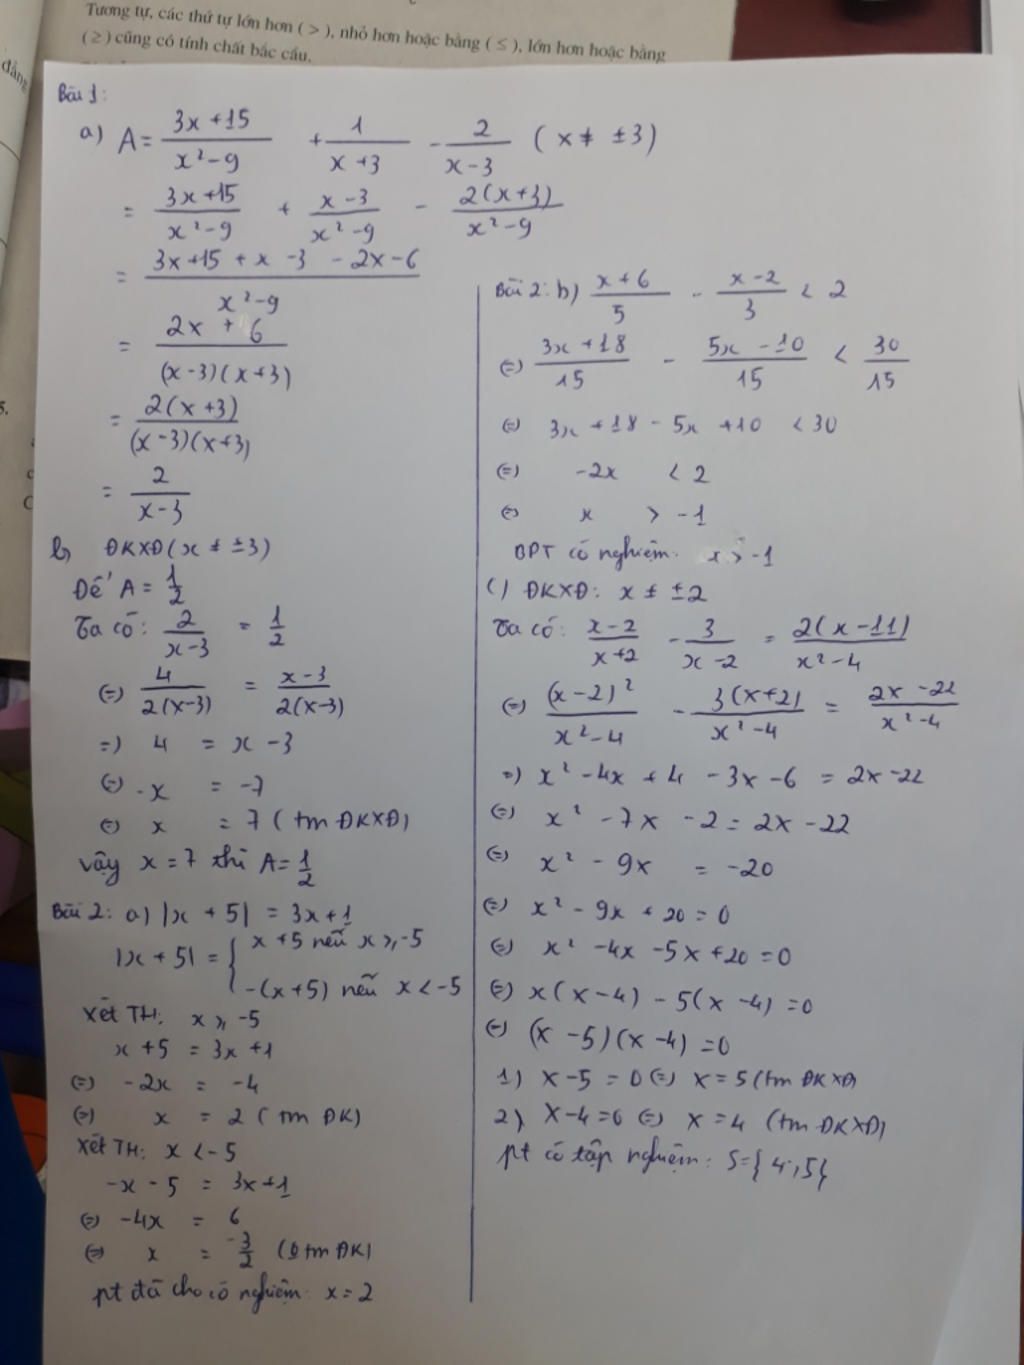 Tương tự, các thứ tự lớn hơn ( > ), nhỏ hơn hoặc bằng ( ≤ ), lớn hơn hoặc bằng
( ≥ ) cũng có tính chất bắc cầu.
đẳng
Bài 1:
a) A = (3x + 15)/(x² - 9) + 1/(x + 3) - 2/(x - 3) ( x ≠ ±3)
= (3x + 15)/(x² - 9) + (x - 3)/(x² - 9) - 2(x + 3)/(x² - 9)
= (3x + 15 + x - 3 - 2x - 6)/(x² - 9)
= (2x + 6)/((x - 3)(x + 3))
= 2(x + 3)/((x - 3)(x + 3))
= 2/(x - 3)
b) ĐKXĐ (x ≠ ±3)
Để A = 1/2
Ta có: 2/(x - 3) = 1/2
(=) 4/(2(x - 3)) = (x - 3)/(2(x - 3))
=) 4 = x - 3
(=) -x = -7
(=) x = 7 ( tm ĐKXĐ)
Vậy x = 7 thì A = 1/2
Bài 2: a) |x + 5| = 3x + 1
|x + 5| = { x + 5 nếu x ≥ -5
-(x + 5) nếu x < -5
Xét TH: x ≥ -5
x + 5 = 3x + 1
(=) -2x = -4
(=) x = 2 ( tm ĐK)
Xét TH: x < -5
-x - 5 = 3x + 1
(=) -4x = 6
(=) x = -3/2 (0 tm ĐK)
pt đã cho có nghiệm: x = 2
Bài 2: b) (x + 6)/5 - (x - 2)/3 < 2
(=) (3x + 18)/15 - (5x - 10)/15 < 30/15
(=) 3x + 18 - 5x + 10 < 30
(=) -2x < 2
(=) x > -1
BPT có nghiệm: x > -1
c) ĐKXĐ: x ≠ ±2
Ta có: (x - 2)/(x + 2) - 3/(x - 2) = 2(x - 11)/(x² - 4)
(=) (x - 2)²/(x² - 4) - 3(x + 2)/(x² - 4) = (2x - 22)/(x² - 4)
=) x² - 4x + 4 - 3x - 6 = 2x - 22
(=) x² - 7x - 2 = 2x - 22
(=) x² - 9x = -20
(=) x² - 9x + 20 = 0
(=) x² - 4x - 5x + 20 = 0
(=) x(x - 4) - 5(x - 4) = 0
(=) (x - 5)(x - 4) = 0
1) x - 5 = 0 (=) x = 5 (tm ĐKXĐ)
2) x - 4 = 0 (=) x = 4 (tm ĐKXĐ)
pt có tập nghiệm: S = { 4 ; 5}